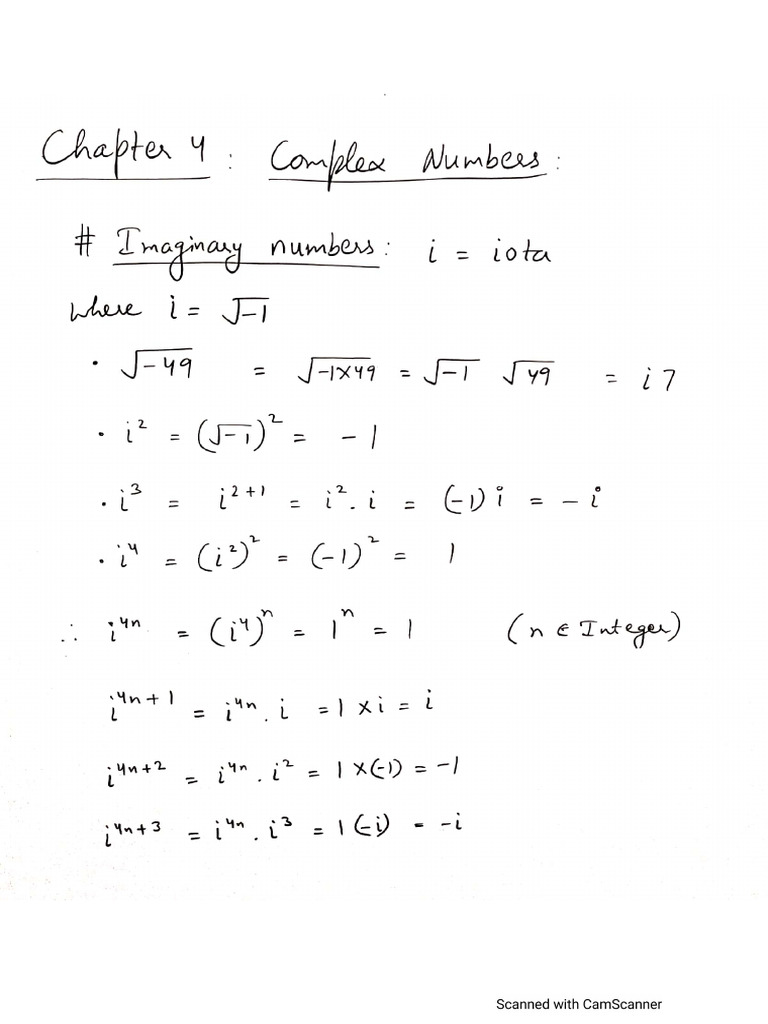 Chapter 4 : Complex Numbers :
# Imaginary numbers : i = iota
where i = √-1
• √-49 = √-1×49 = √-1 √49 = i 7
• i² = (√-1)² = -1
• i³ = i²⁺¹ = i² . i = (-1) i = - i
• i⁴ = (i²)² = (-1)² = 1
∴ i⁴ⁿ = (i⁴)ⁿ = 1ⁿ = 1 (n ∈ Integer)
i⁴ⁿ⁺¹ = i⁴ⁿ . i = 1 × i = i
i⁴ⁿ⁺² = i⁴ⁿ . i² = 1 × (-1) = -1
i⁴ⁿ⁺³ = i⁴ⁿ . i³ = 1 (-i) = -i
Scanned with CamScanner